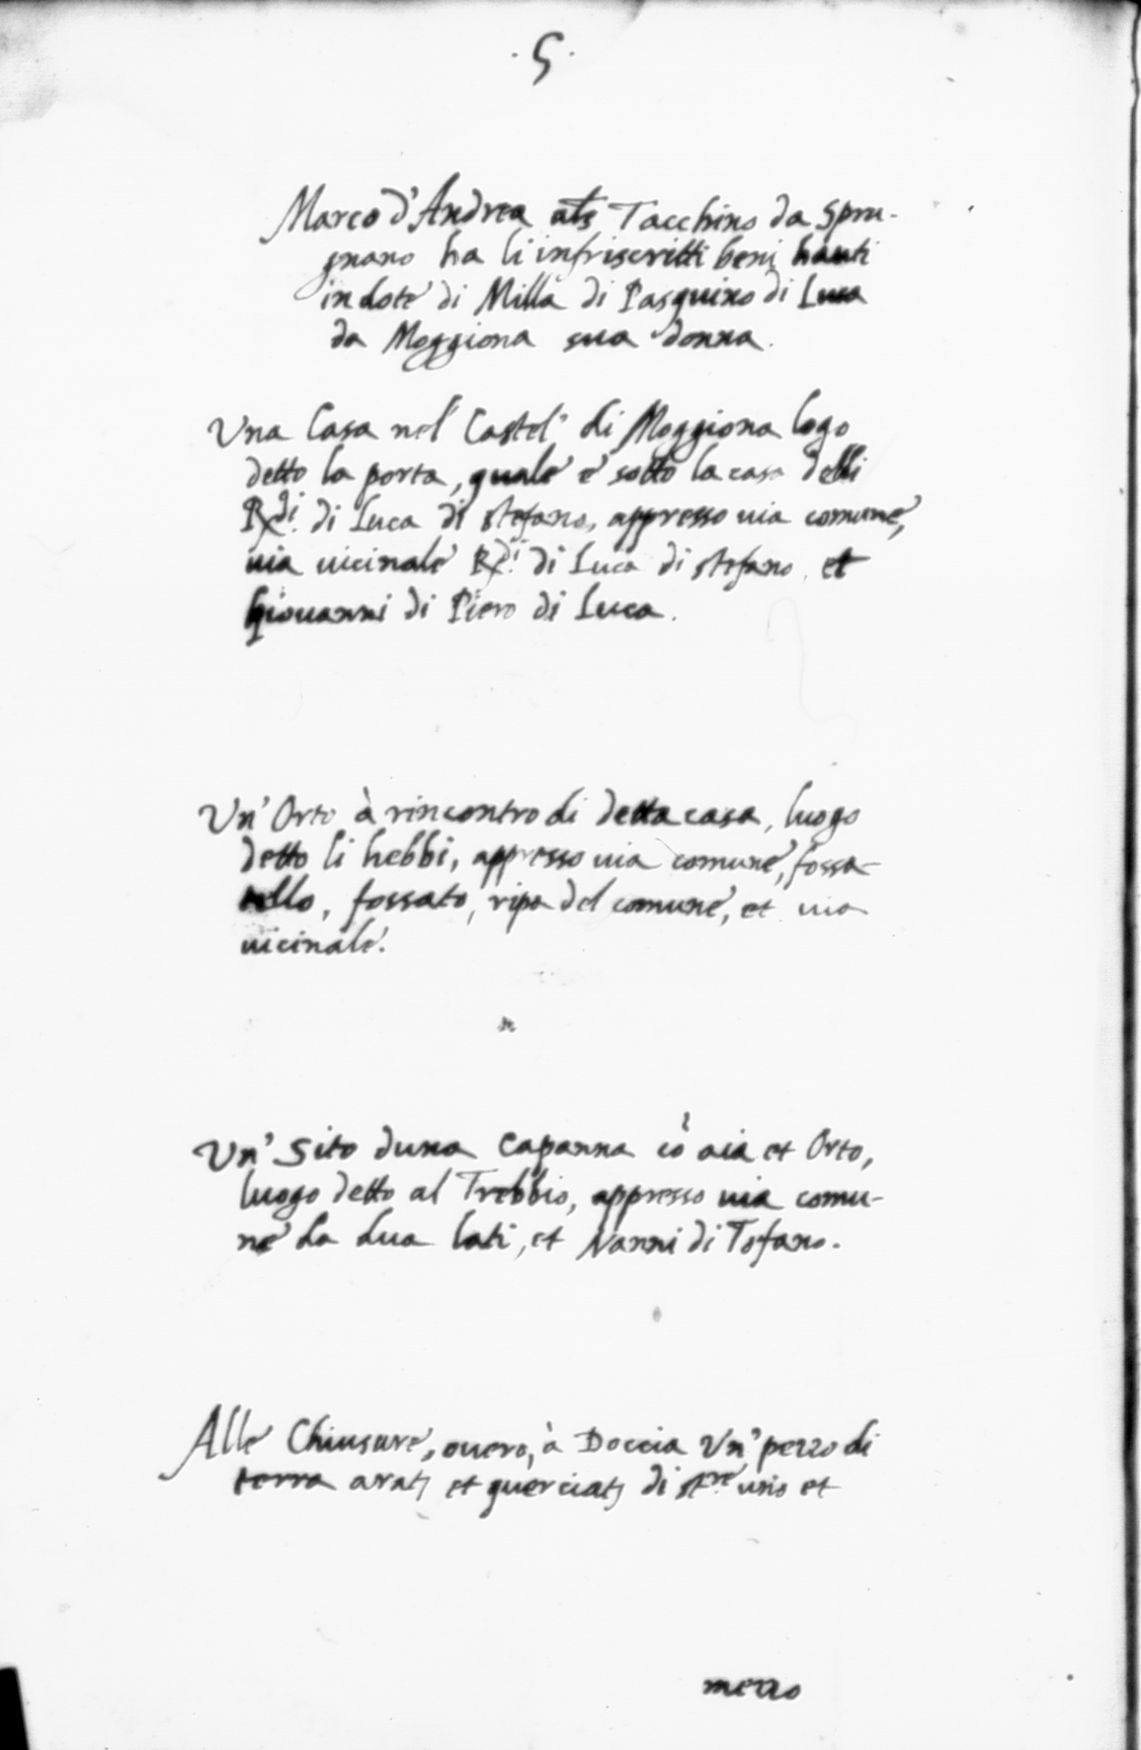 ·5·
Marco d'Andrea als Tacchino da Spru-
gnano ha li infriscritti beni hauti
in dote di Milla di Pasquino di Luca
da Moggiona sua donna.
Una Casa nel Castel' di Moggiona logo
detto la porta, quale e' sotto la casa delli
Rdi. di Luca di stefano, appresso uia comune,
uia uicinale Rdi. di Luca di stefano, et
Giouanni di Piero di Luca.
Un' Orto à rincontro di detta casa, luogo
detto li hebbi, appresso uia comune, fossa-
tello, fossato, ripa del comune, et uia
uicinale.
Un' Sito duna Capanna cō aia et Orto,
luogo detto al Trebbio, appresso uia comu-
ne da dua lati, et Nanni di Tofano.
Alle Chiusure, ouero, à Doccia Un' pezzo di
terra arat; et querciat; di stre. uno et
mezzo